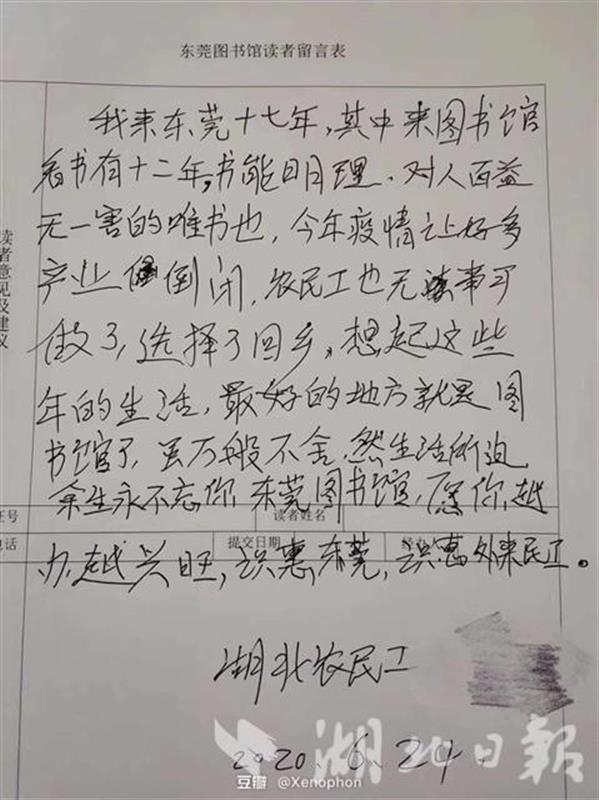 东莞图书馆读者留言表
我来东莞十七年,其中来图书馆
看书有十二年,书能明理、对人百益
无一害的唯书也,今年疫情让好多
产业倒闭,农民工也无事可
做了,选择了回乡。想起这些
年的生活,最好的地方就是图
书馆了,虽万般不舍,然生活所迫
余生永不忘你,东莞图书馆,愿你越
办越兴旺,识惠东莞,识惠外来民工。
湖北农民工
2020.6.24.
读者意见及建议
证号
读者姓名
电话
提交日期
湖北日報
豆瓣 @Xenophon